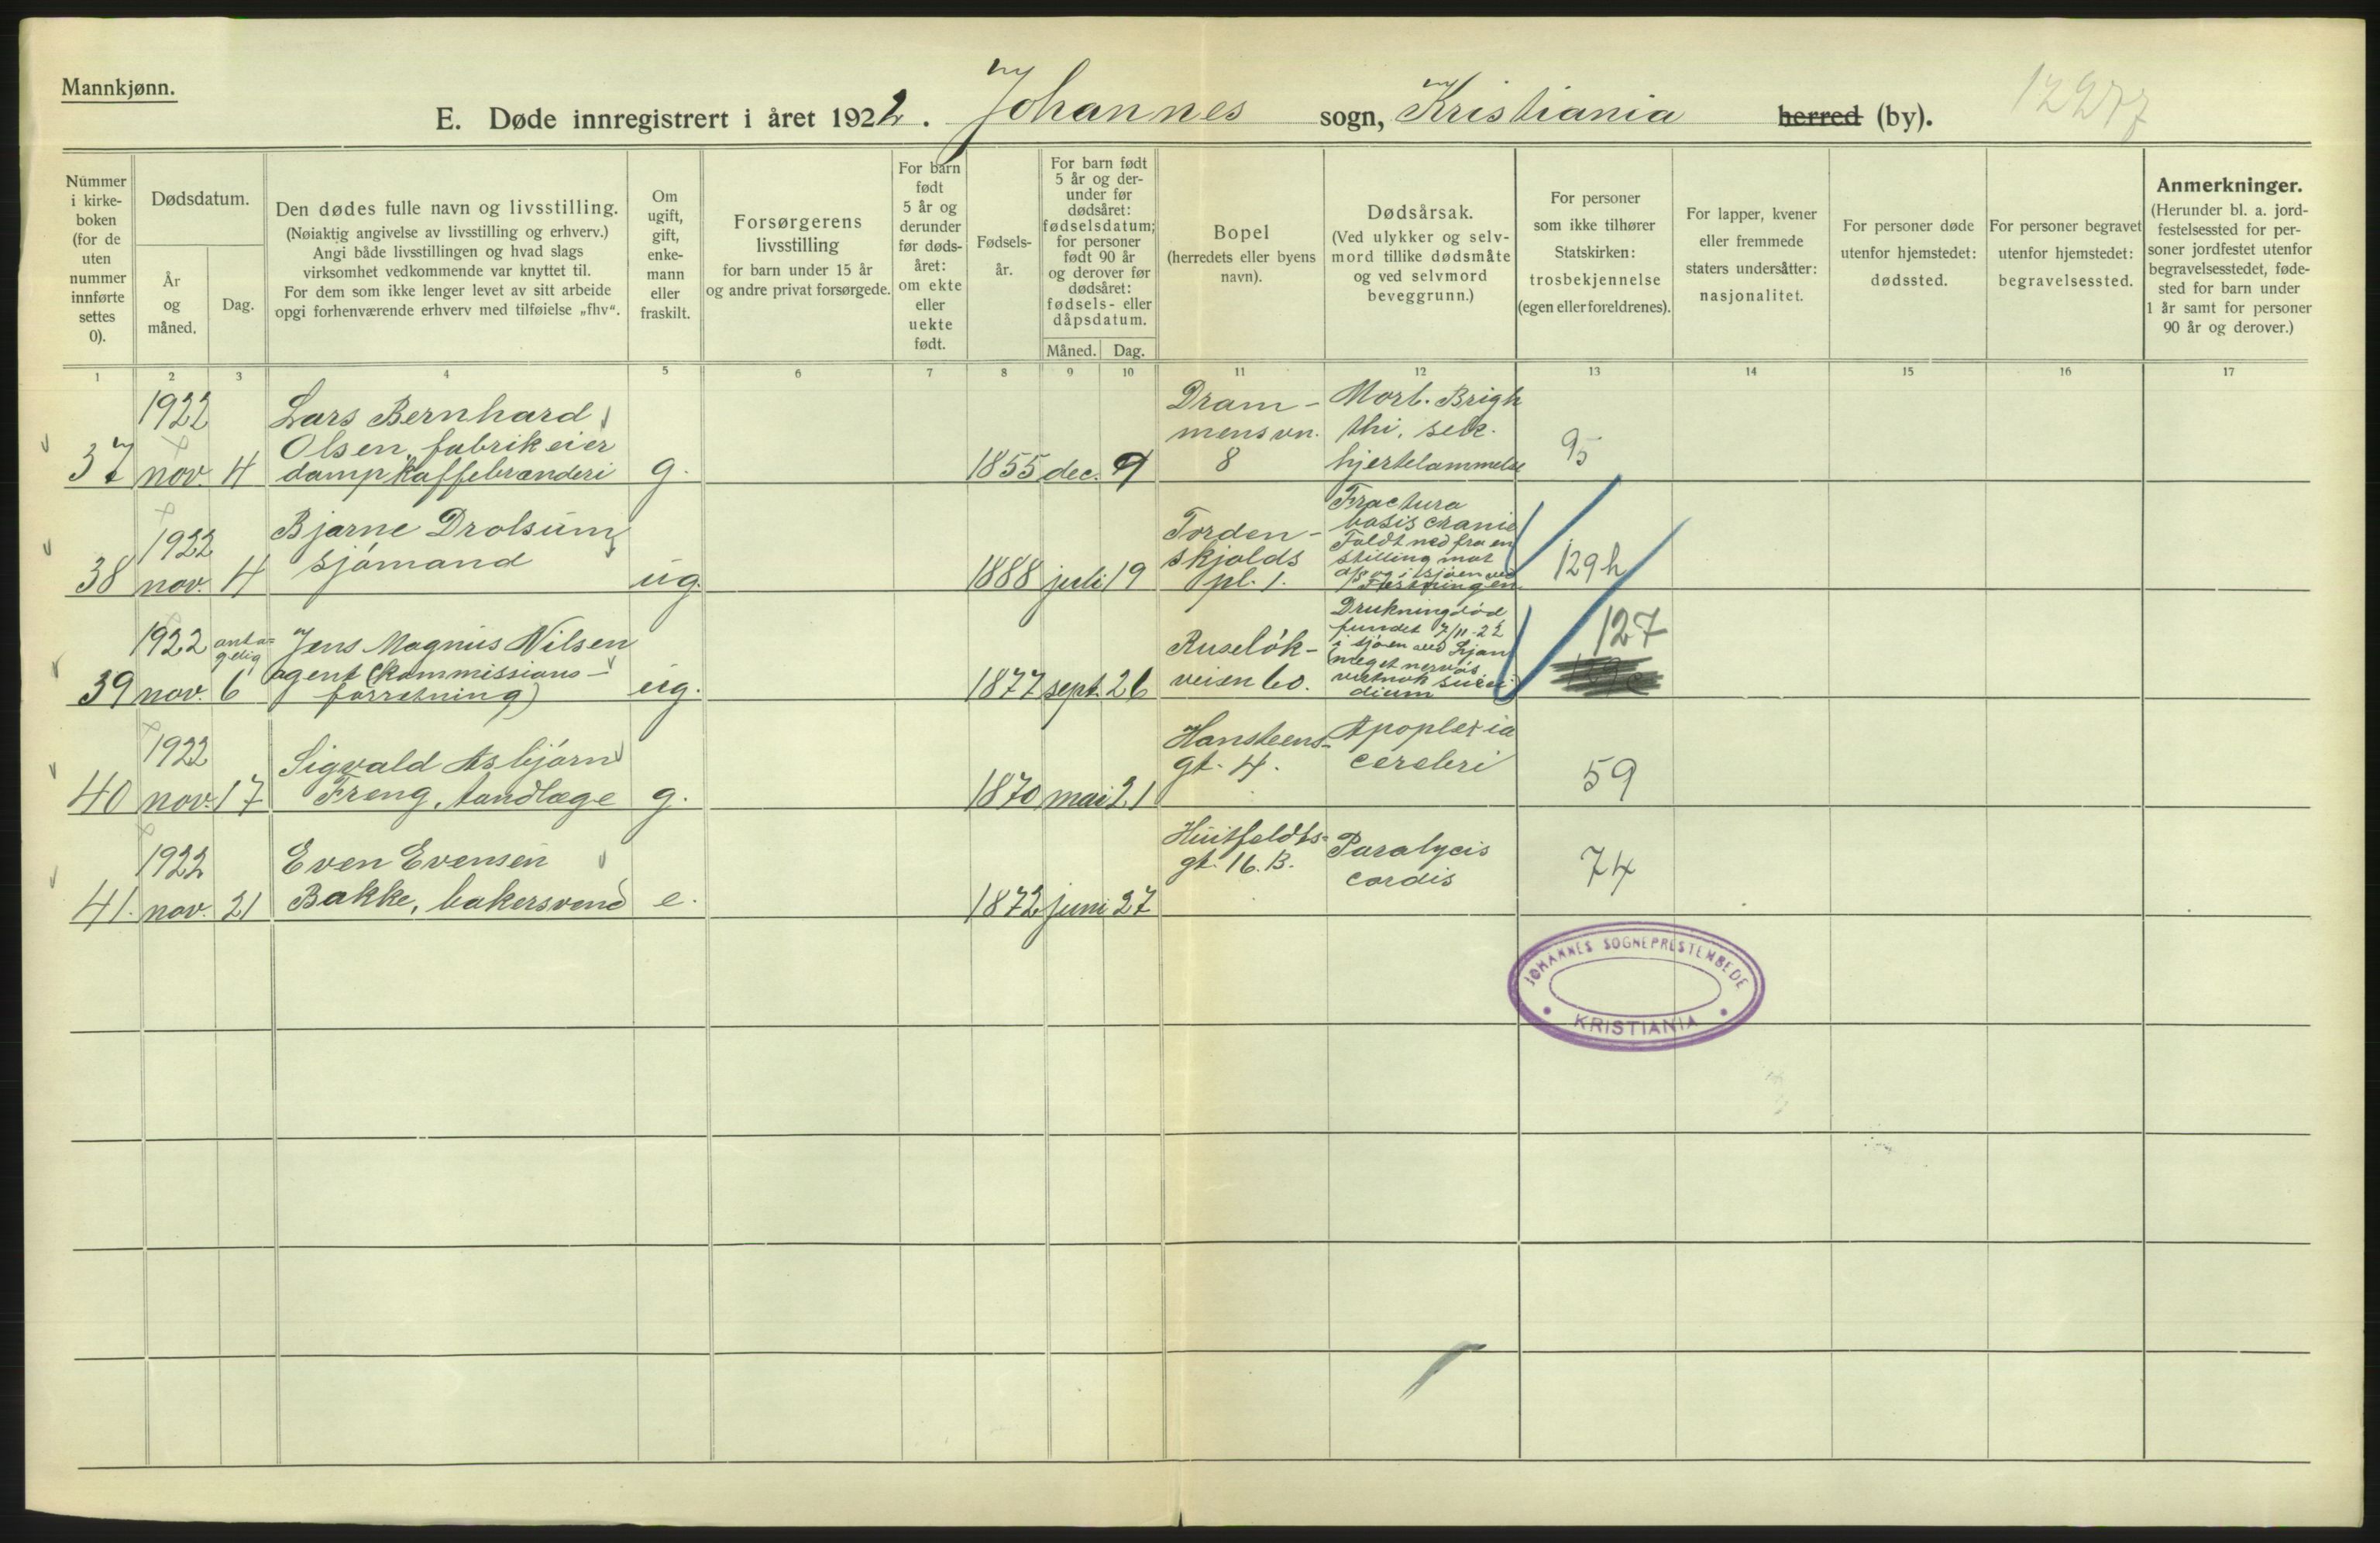 Mannkjønn.
E. Døde innregistrert i året 1922. Johannes sogn, Kristiania herred (by).
Nummer i kirke-boken (for de uten nummer innførte settes 0).
Dødsdatum.
År og måned.
Dag.
Den dødes fulle navn og livsstilling.
(Nøiaktig angivelse av livsstilling og erhverv.)
Angi både livsstillingen og hvad slags
virksomhet vedkommende var knyttet til.
For dem som ikke lenger levet av sitt arbeide
opgi forhenværende erhverv med tilføielse „fhv“.
Om ugift, gift, enke-mann eller fraskilt.
Forsørgerens
livsstilling
for barn under 15 år
og andre privat forsørgede.
For barn født 5 år og derunder før døds-året: om ekte eller uekte født.
Fødsels-
år.
For barn født 5 år og der-under før dødsåret: fødselsdatum; for personer født 90 år og derover før dødsåret: fødsels- eller dåpsdatum.
Måned. Dag.
Bopel
(herredets eller byens
navn).
Dødsårsak.
(Ved ulykker og selv-
mord tillike dødsmåte
og ved selvmord
beveggrunn.)
For personer
som ikke tilhører
Statskirken:
trosbekjennelse
(egen eller foreldrenes).
For lapper, kvener
eller fremmede
staters undersåtter:
nasjonalitet.
For personer døde
utenfor hjemstedet:
dødssted.
For personer begravet
utenfor hjemstedet:
begravelsessted.
Anmerkninger.
(Herunder bl. a. jord-
festelsessted for per-
soner jordfestet utenfor
begravelsesstedet, føde-
sted for barn under
1 år samt for personer
90 år og derover.)
1 2 3 4 5 6 7 8 9 10 11 12 13 14 15 16 17
37 1922 nov. 4
Lars Bernhard
Olsen, fabrikeier
dampkaffebrænderi
g.
1855 dec. 9
Dram-
mensvn.
8
Morb. Brigh
thi, sek.
hjertelammelse
95
38 1922 nov. 4
Bjarne Drolsum
sjómand
ug.
1888 juli 19
Torden-
skjolds
pl. 1.
Fractura
basis cranie
Faldt ned fra en
stilling mot
og i sjøen ved
129h
39 1922 nov. antagelig 6
Jens Magnus Nilsen
agent (kommissions-
forretning)
ug.
1877 sept. 26
Ruselók-
veien 60.
Drukningdöd
fundet 7/11-22
i sjøen ved
meget nervøs
dium
127
40 1922 nov. 17
Sigvald Asbjórn
Freng, tandlæge
g.
1870 mai 21
Hansteens-
gt. 4.
Apoplexia
cerebri
59
41. 1922 nov. 21
Even Evensen
Bakke, bakersvend
e.
1872 juni 27
Huitfeldts-
gt. 16. B.
Paralycis
cordis
74
JOHANNES SOGNEPRESTEMBEDE
KRISTIANIA